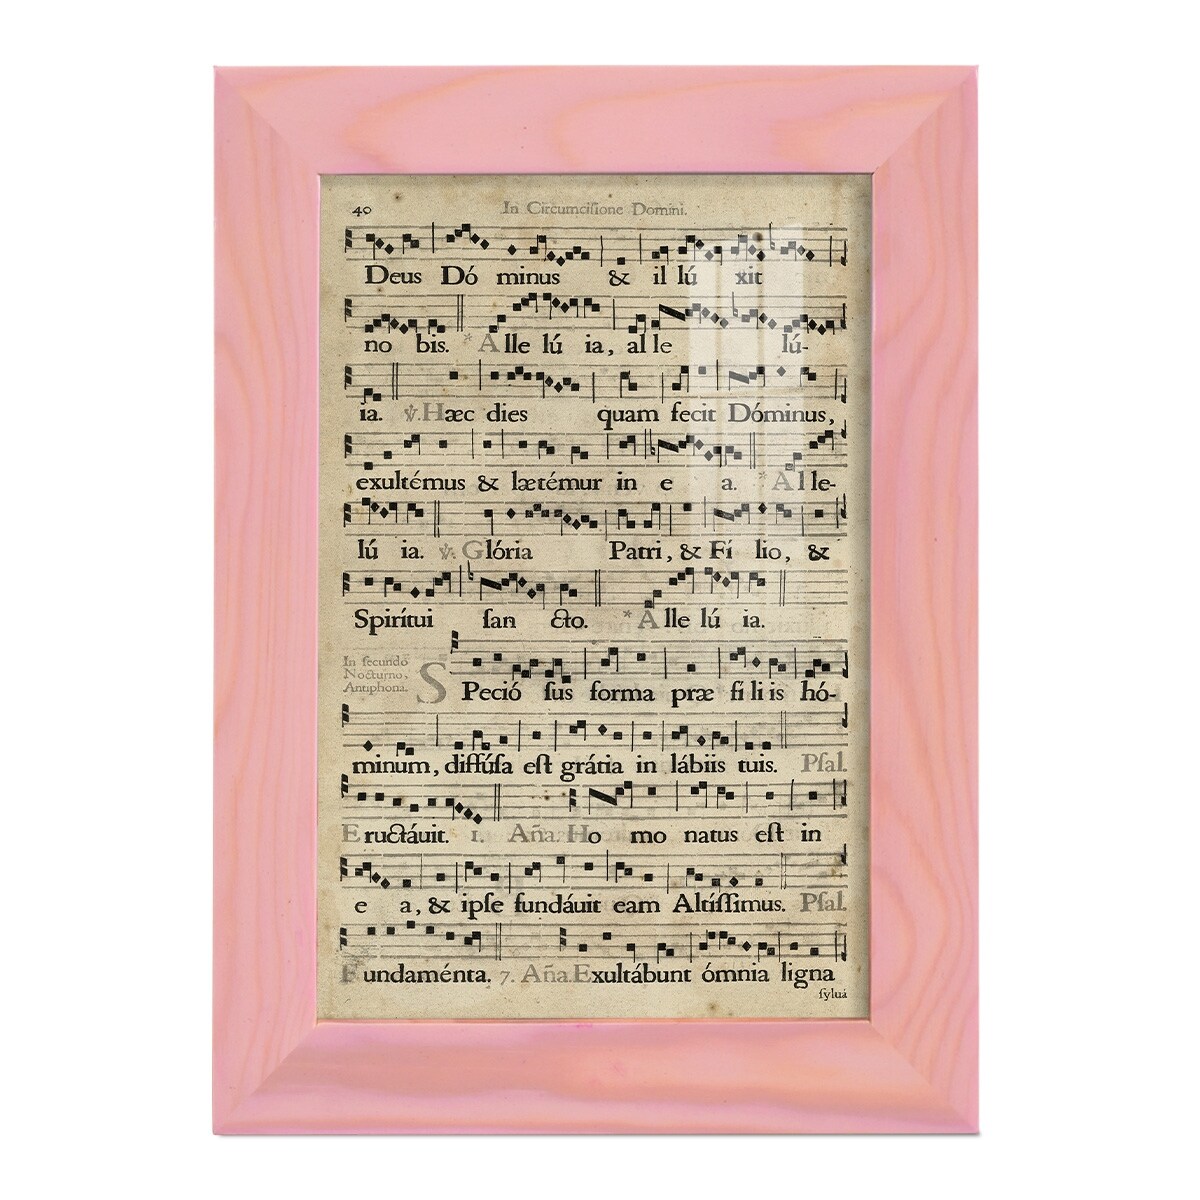 40 In Circumciſione Domini.
Deus Dó minus & il lú xit
no bis. * Alle lú ia, al le lú-
ia. ℣. Hæc dies quam fecit Dóminus,
exultémus & lætémur in e a. * Al le-
lú ia. ℣. Glória Patri, & Fí lio, &
Spirítui ſan cto. * A lle lú ia.
In ſecundo
Nocturno,
Antiphona.
SPeció ſus forma præ fí li is hó-
minum, diffúſa eſt grátia in lábiis tuis. Pſal.
Eructáuit. 1. Aña. Ho mo natus eſt in
e a, & ipſe fundáuit eam Altíſſimus. Pſal.
Fundaménta. 7. Aña. Exultábunt ómnia ligna
ſyluá